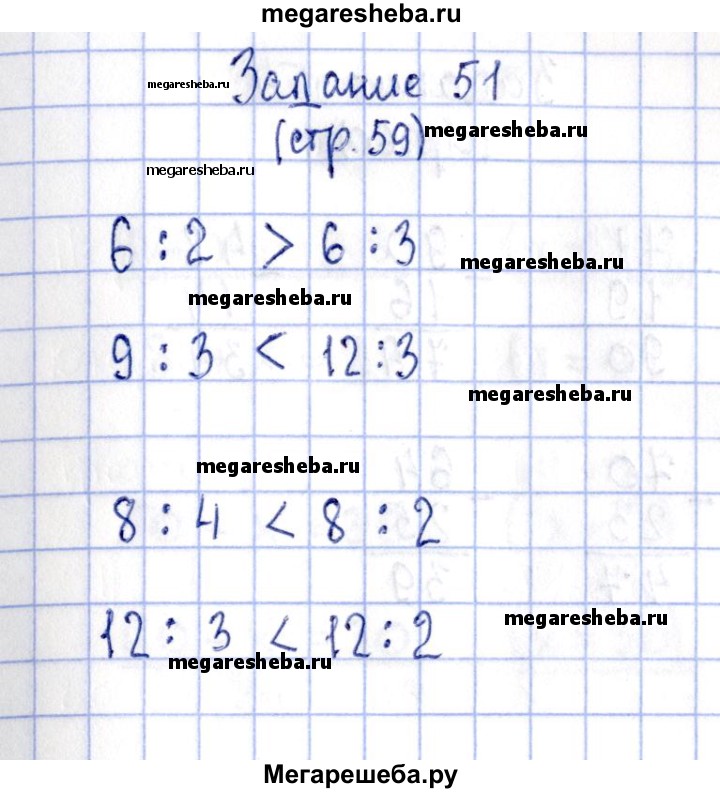 megaresheba.ru
Задание 51
megaresheba.ru
(стр. 59)
megaresheba.ru
megaresheba.ru
6 : 2 > 6 : 3
megaresheba.ru
megaresheba.ru
9 : 3 < 12 : 3
megaresheba.ru
megaresheba.ru
8 : 4 < 8 : 2
12 : 3 < 12 : 2
megaresheba.ru
megaresheba.ru
Мегарешеба.ру